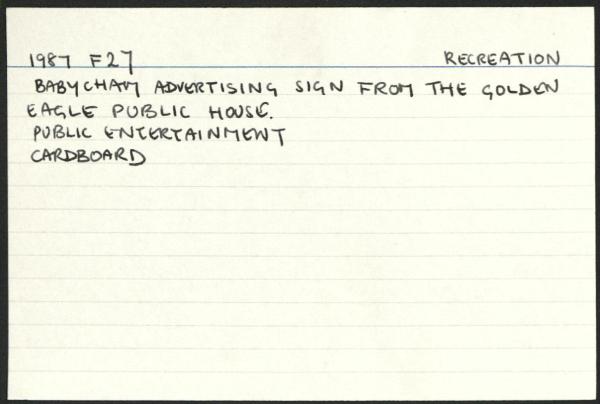 1987 F27 RECREATION
BABYCHAM ADVERTISING SIGN FROM THE GOLDEN
EAGLE PUBLIC HOUSE.
PUBLIC ENTERTAINMENT
CARDBOARD